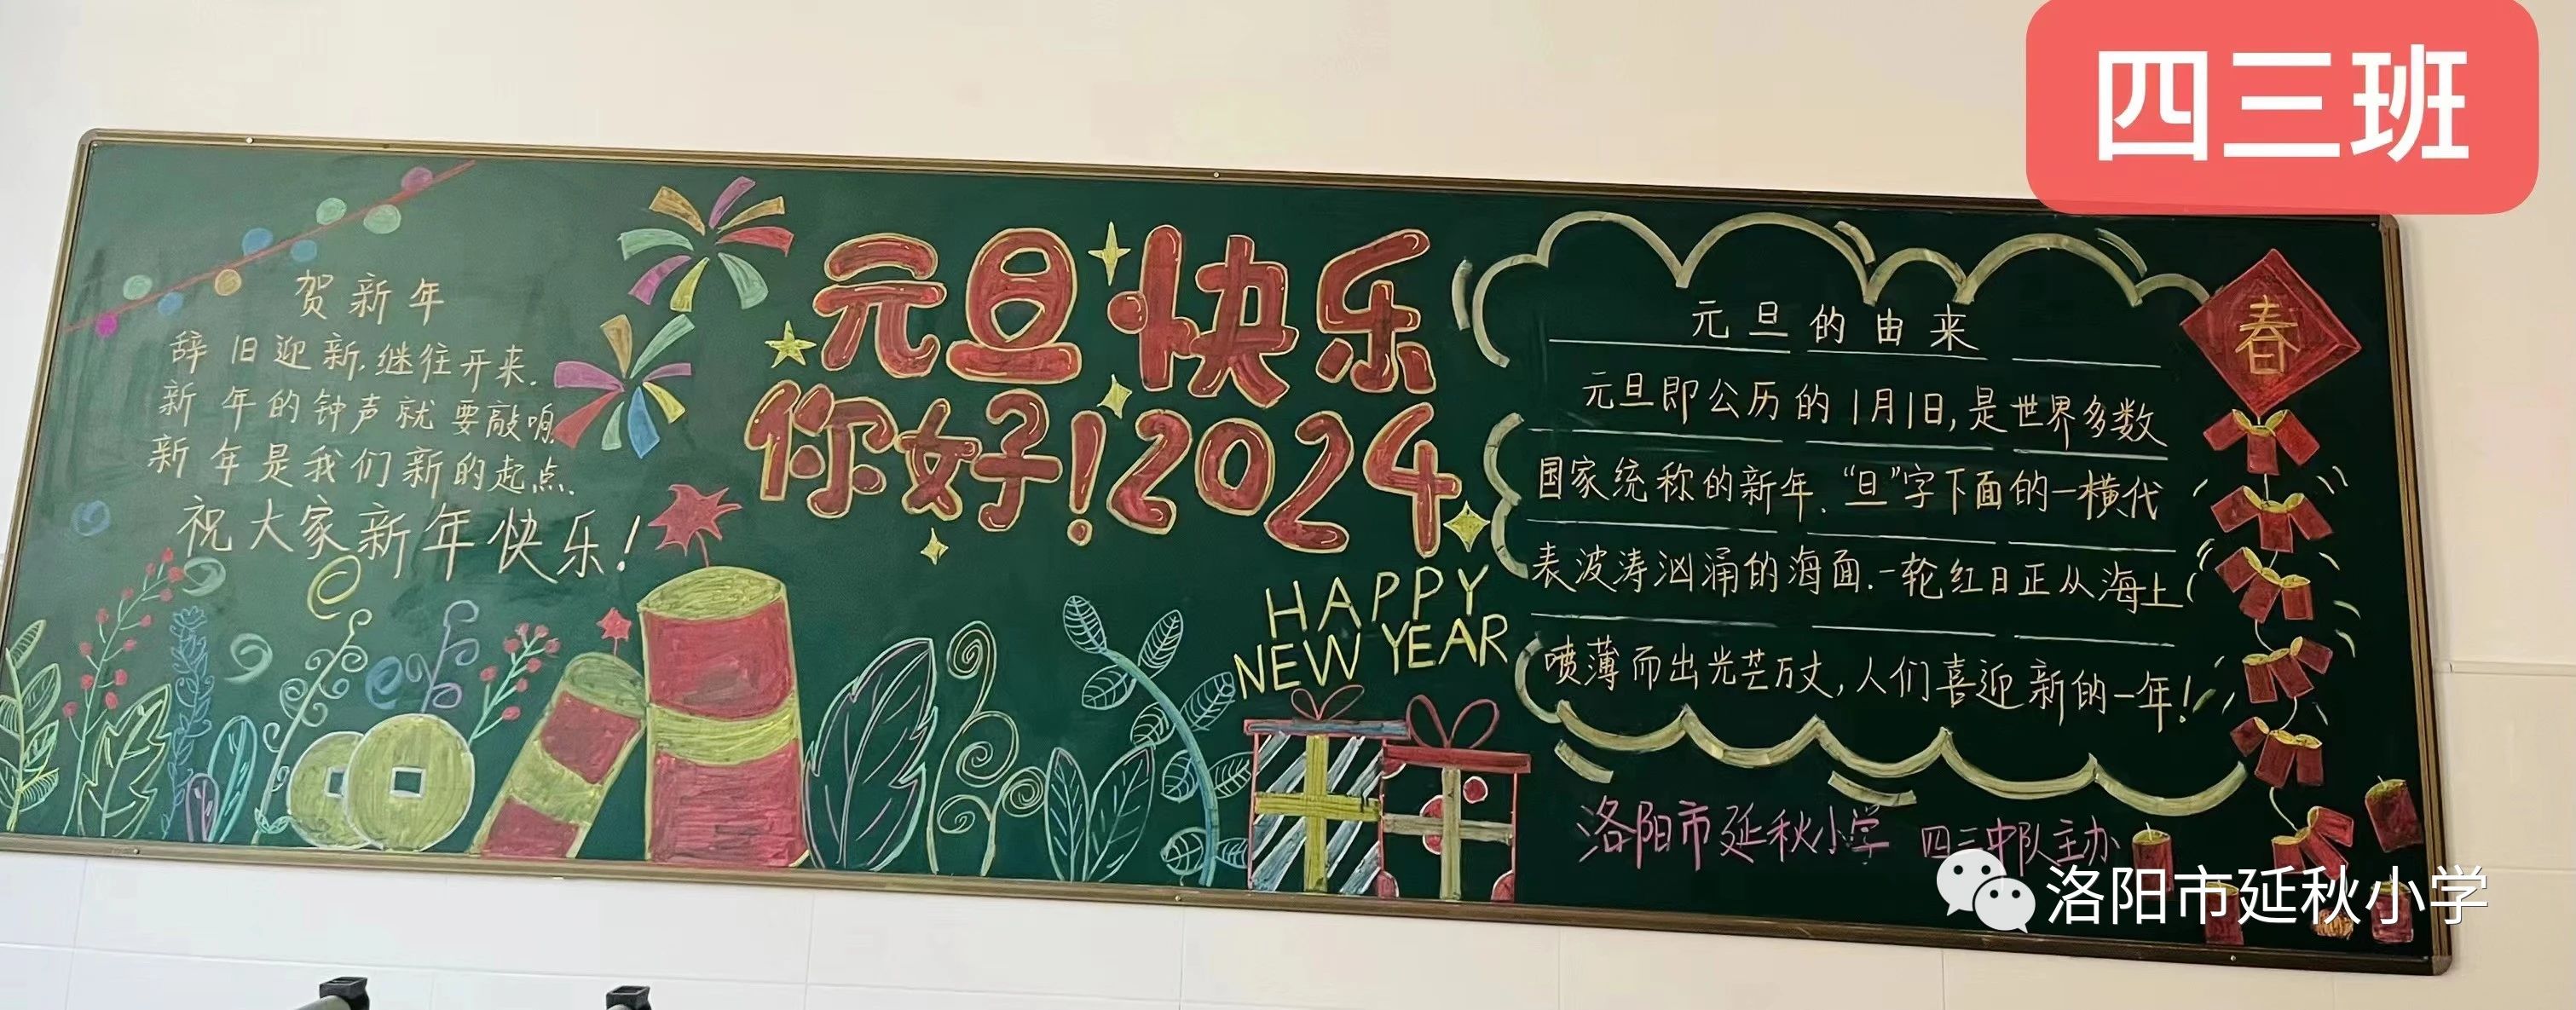 四三班
贺新年
辞旧迎新,继往开来.
新年的钟声就要敲响
新年是我们新的起点.
祝大家新年快乐!
元旦快乐
你好!2024
HAPPY
NEW YEAR
元旦的由来
元旦即公历的1月1日,是世界多数
国家统称的新年.“旦”字下面的一横代
表波涛汹涌的海面.一轮红日正从海上
喷薄而出光芒万丈,人们喜迎新的一年!
春
洛阳市延秋小学 四三中队主办
洛阳市延秋小学